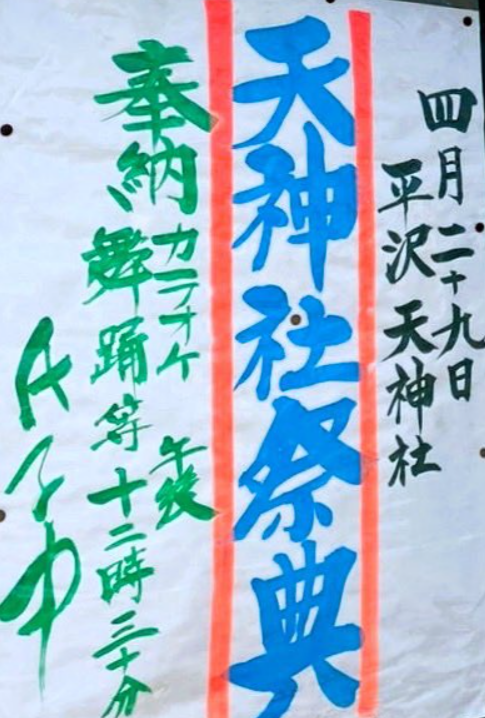 四月二十九日
平沢天神社
天神社祭典
奉納カラオケ
舞踊等午後
十二時三十分
氏子中